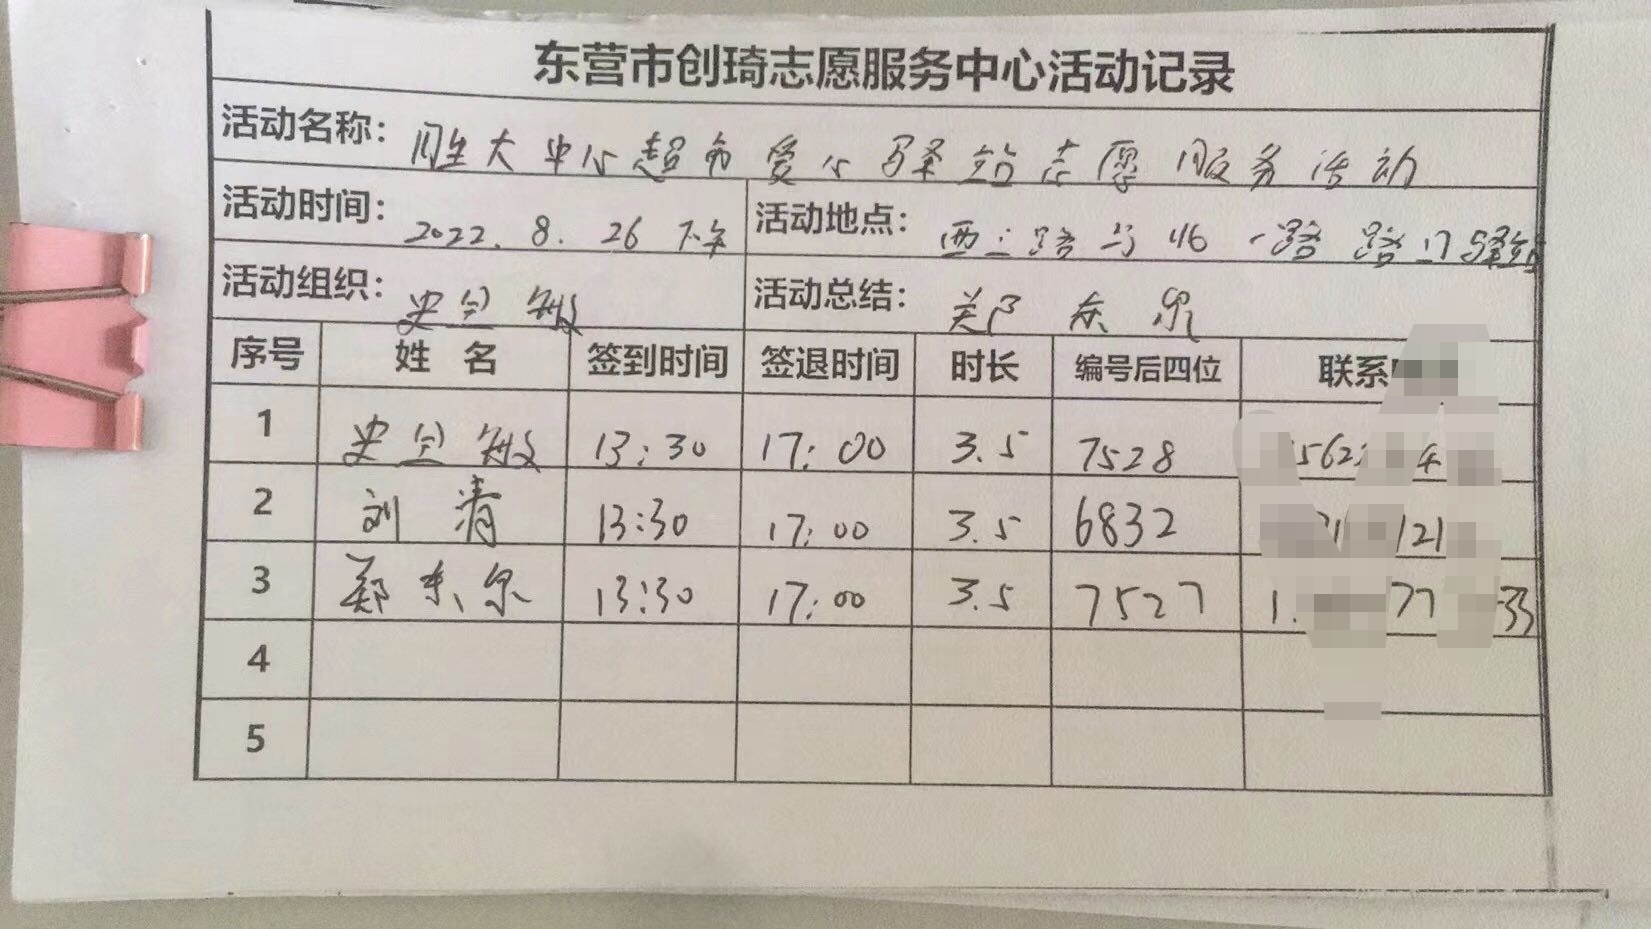 东营市创琦志愿服务中心活动记录
活动名称：胜大中心超市爱心驿站志愿服务活动
活动时间：2022.8.26下午 活动地点：西二路与北一路路口驿站
活动组织：史 敏 活动总结：郑东
序号 姓名 签到时间 签退时间 时长 编号后四位 联系
1 史 敏 13:30 17:00 3.5 7528 562 4
2 刘清 13:30 17:00 3.5 6832 121
3 郑东 13:30 17:00 3.5 7527 1 77 33
4
5